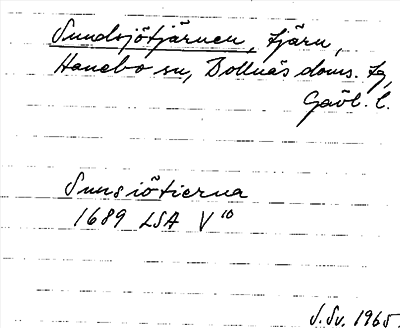 Sundsjötjärnen, tjärn,
Hanebo sn, Bollnäs doms. tg,
Gävl. l.
Sunsiötierna
1689 LSA V 10
S. Sv. 1965